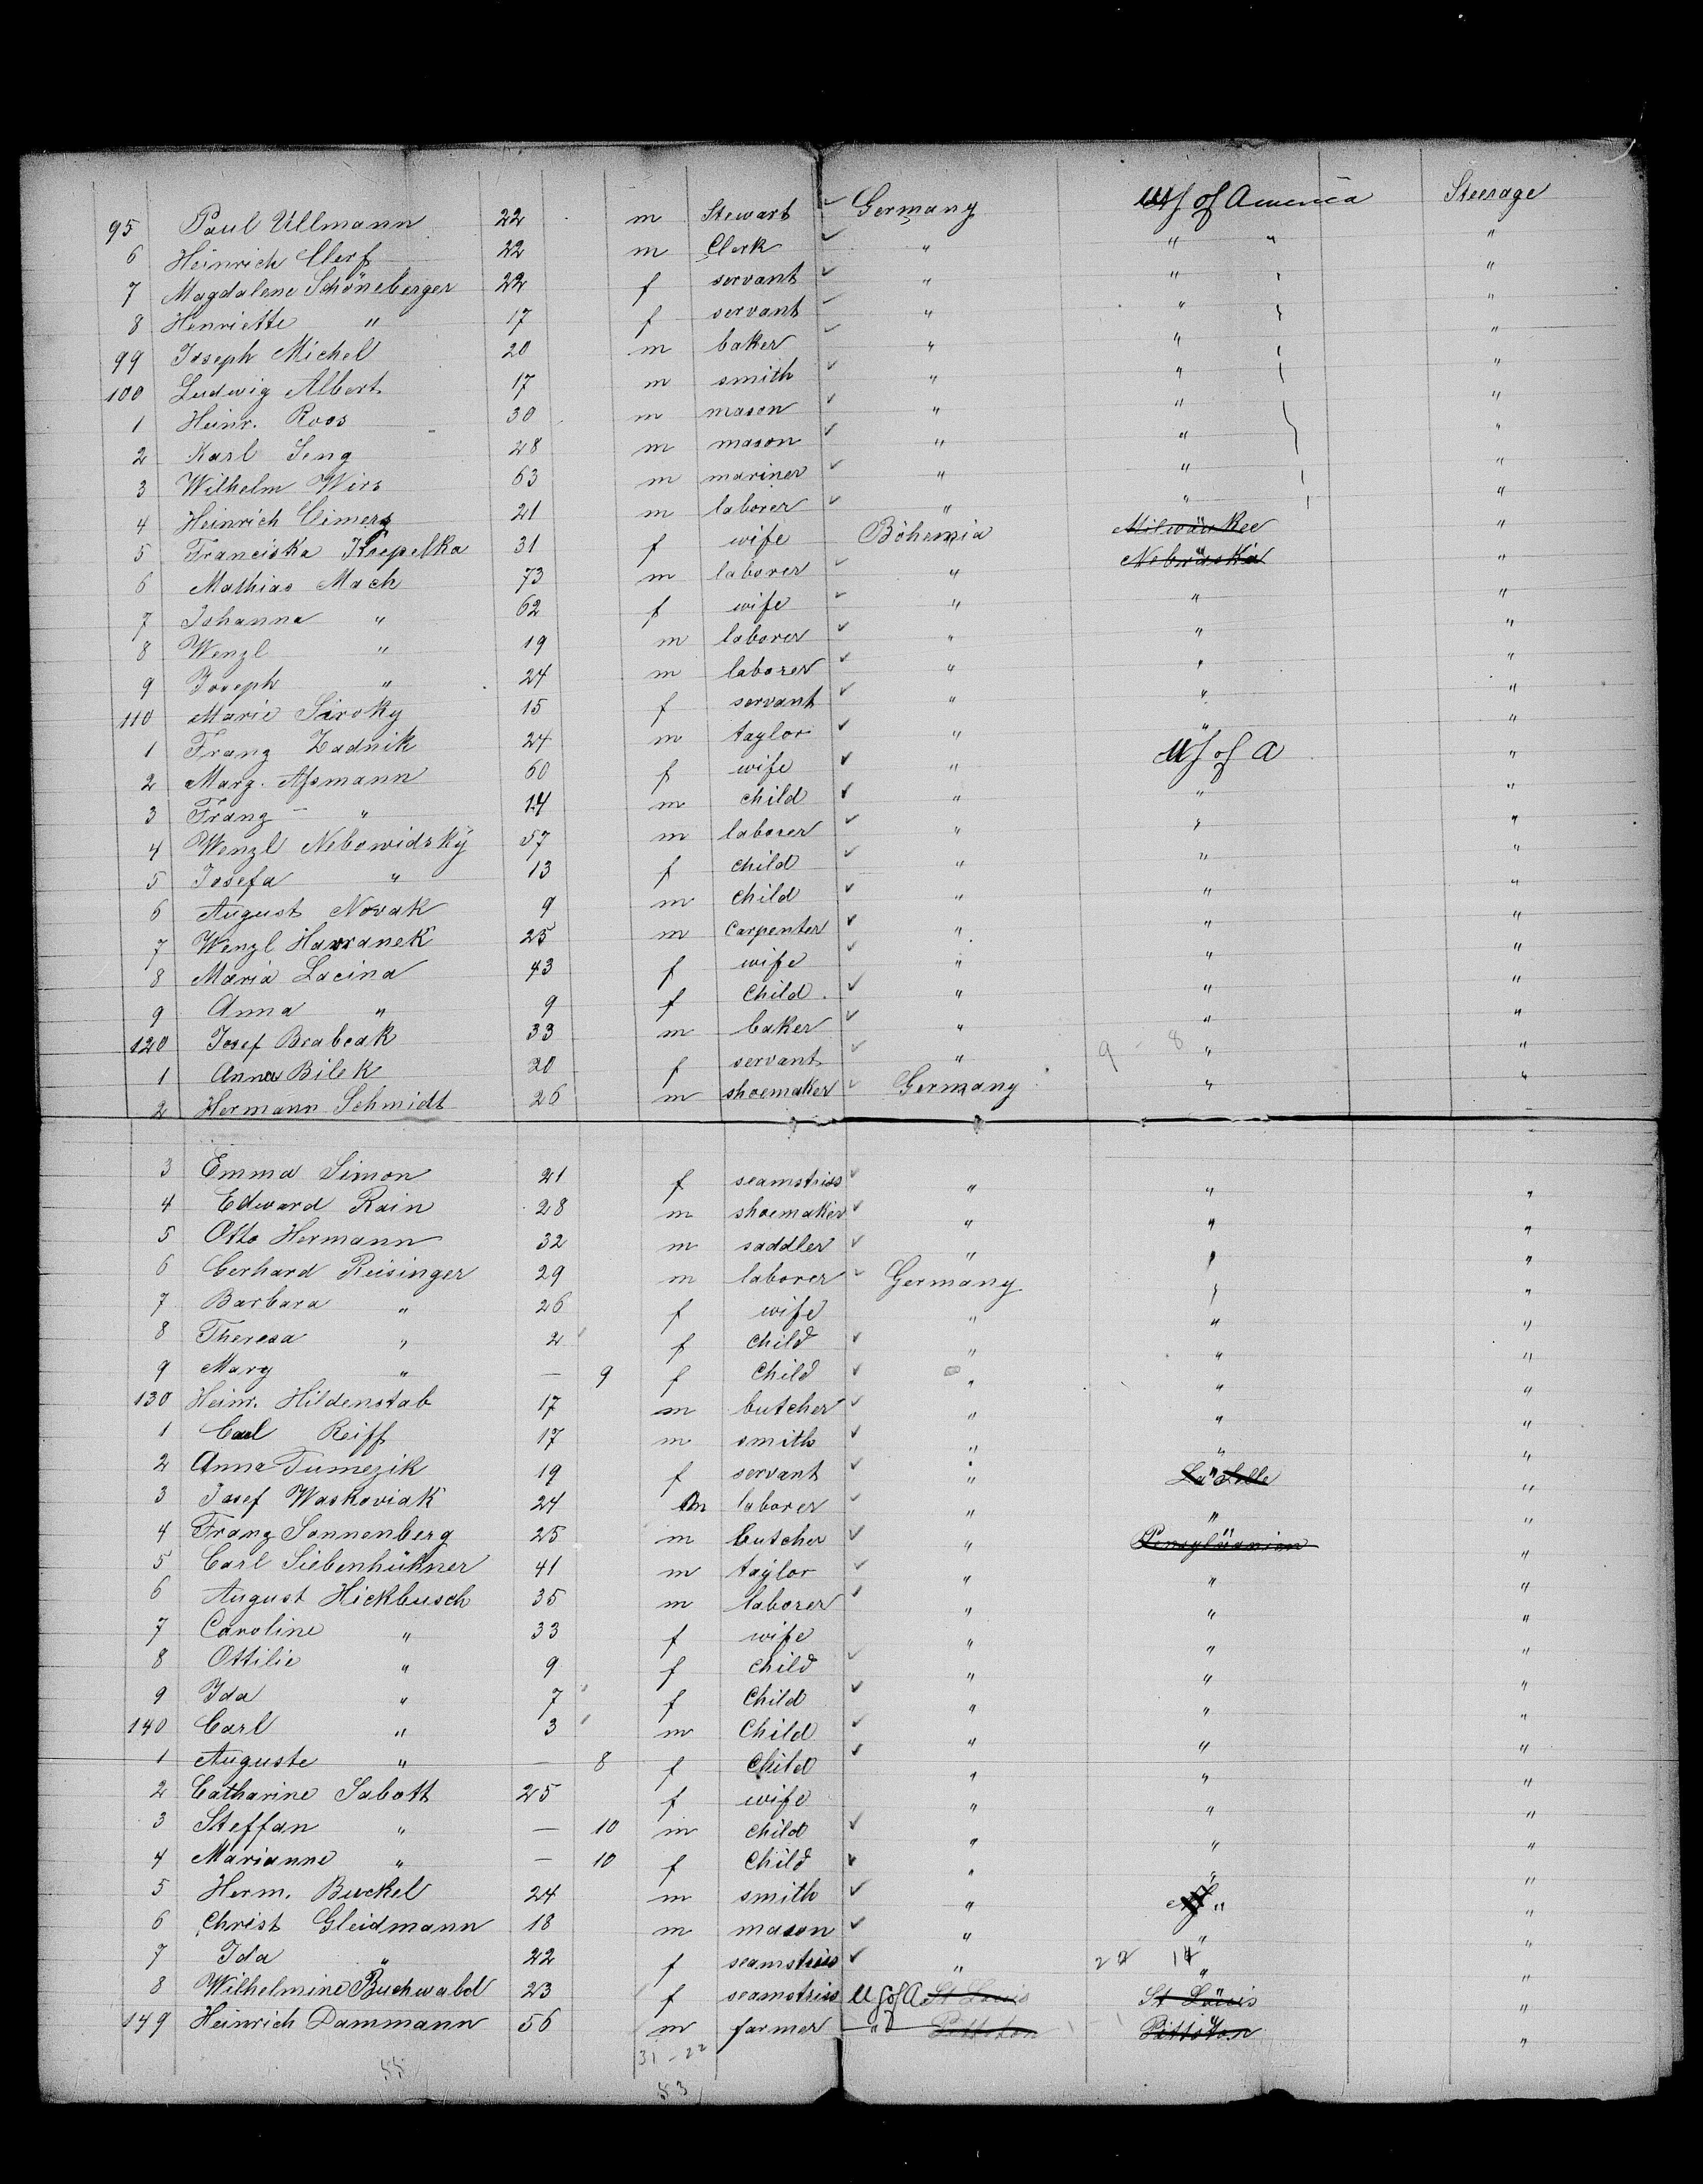 95 Paul Ullmann 22 m Stewart Germany US of America Steerage
6 Heinrich Clerf 22 m Clerk " " " "
7 Magdalene Schöneberger 22 f servant " " "
8 Henriette " 17 f servant " " "
99 Joseph Michel 20 m baker " " "
100 Ludwig Albert 17 m smith " " "
1 Heinr. Roos 30 m mason " " "
2 Karl Jeng 28 m mason " " "
3 Wilhelm Wirs 63 m mariner " " "
4 Heinrich Cimerz 21 m laborer " " "
5 Franciska 31 f wife Böhemia Milwaukee "
6 Mathias Mach 73 m laborer " Nebraska "
7 Johanna " 62 f wife " " "
8 Wenzl " 19 m laborer " " "
9 Joseph " 24 m laborer " " "
110 Marie Siroky 15 f servant " " "
1 Franz Zadnik 24 m taylor " " "
2 Marg. Assmann 60 f wife " US of A "
3 Franz " 14 m child " " "
4 Wenzl Nebowidsky 57 m laborer " " "
5 Josefa " 13 f child " " "
6 August Novak 9 m child " " "
7 Wenzl Havranek 25 m carpenter " " "
8 Maria Lacina 43 f wife " " "
9 Anna " 9 f Child " " "
120 Josef Brabcak 33 m baker " " "
1 Anna Bilek 20 f servant " 9 - 8 " "
2 Hermann Schmidt 26 m shoemaker Germany " "
3 Emma Simon 21 f seamstriss " " "
4 Edward Rain 28 m shoemaker " " "
5 Otto Hermann 32 m saddler " " "
6 Gerhard Reisinger 29 m laborer Germany " "
7 Barbara " 26 f wife " " "
8 Theresa " 2 f child " " "
9 Mary " — 9 f Child " " "
130 Heinr. Hildenstab 17 m butcher " " "
1 Carl Reiff 17 m smith " " "
2 Anna Tumezik 19 f servant " La Salle "
3 Josef Waskoviak 24 m laborer " " "
4 Franz Sonnenberg 25 m butcher " Pensylvanian "
5 Carl Siebenhühner 41 m taylor " " "
6 August Hickbusch 35 m laborer " " "
7 Caroline " 33 f wife " " "
8 Ottilie " 9 f child " " "
9 Ida " 7 f Child " " "
140 Carl " 3 m Child " " "
1 Auguste " — 8 f Child " " "
2 Catharine Sabott 25 f wife " " "
3 Steffan " — 10 m child " " "
4 Marianne " — 10 f Child " " "
5 Herm. Buckel 24 m smith " " "
6 Christ Gleidmann 18 m mason " " "
7 Ida " 22 f seamstriss " " "
8 Wilhelmine Buchwald 23 f seamstriss US of A St Louis St Louis "
149 Heinrich Dammann 56 m farmer " Pittston Pittston "
31 - 22
55
53